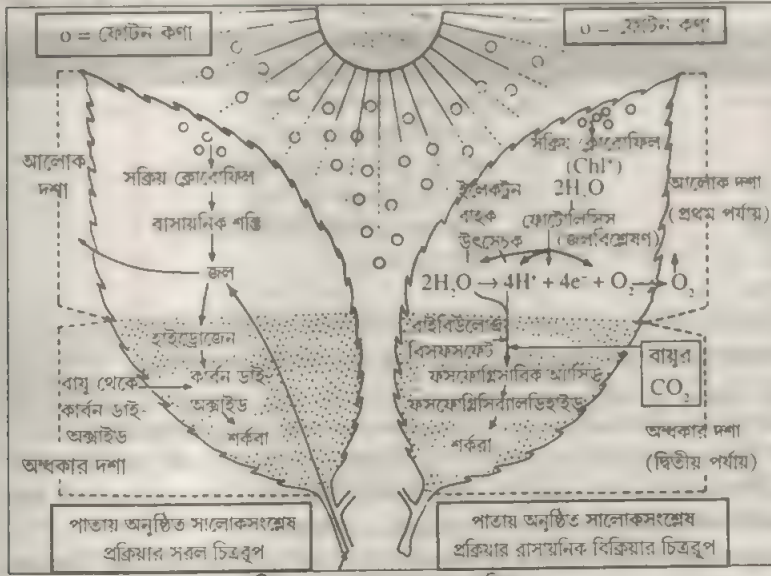 ০ = ফোটন কণা
আলোক
দশা
সক্রিয় ক্লোরোফিল
রাসায়নিক শক্তি
জল
হাইড্রোজেন
বায়ু থেকে
কার্বন ডাই-
অক্সাইড
কার্বন ডাই-
অক্সাইড
শর্করা
অন্ধকার দশা
পাতায় অনুষ্ঠিত সালোকসংশ্লেষ
প্রক্রিয়ার সরল চিত্ররূপ
০ = ফোটন কণা
সক্রিয় ক্লোরোফিল
(Chl*)
2H₂O
ইলেকট্রন
বাহক
উৎসেচক
ফোটোলিসিস
(জলবিশ্লেষণ)
2H₂O → 4H⁺ + 4e⁻ + O₂ → O₂
আলোক দশা
(প্রথম পর্যায়)
রাইবিউলোজ
বিসফসফেট
ফসফোগ্লিসারিক অ্যাসিড
ফসফোগ্লিসার‍্যালডিহাইড
শর্করা
বায়ুর
CO₂
অন্ধকার দশা
(দ্বিতীয় পর্যায়)
পাতায় অনুষ্ঠিত সালোকসংশ্লেষ
প্রক্রিয়ার রাসায়নিক বিক্রিয়ার চিত্ররূপ